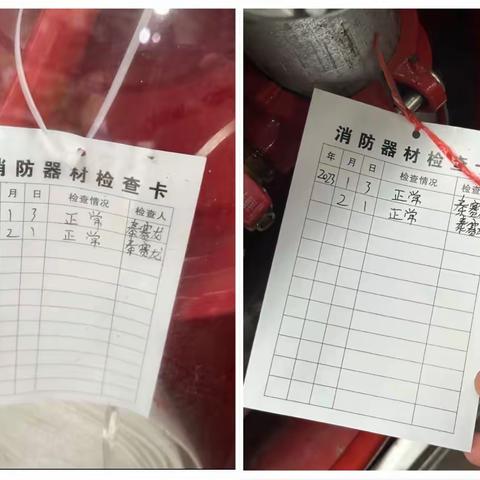 消防器材检查卡
月 日 检查情况 检查人
1 3 正常 秦赛龙
2 1 正常 秦赛龙
消防器材检查卡
年 月 日 检查情况 检查
2023 1 3 正常 秦赛
2 1 正常 秦赛